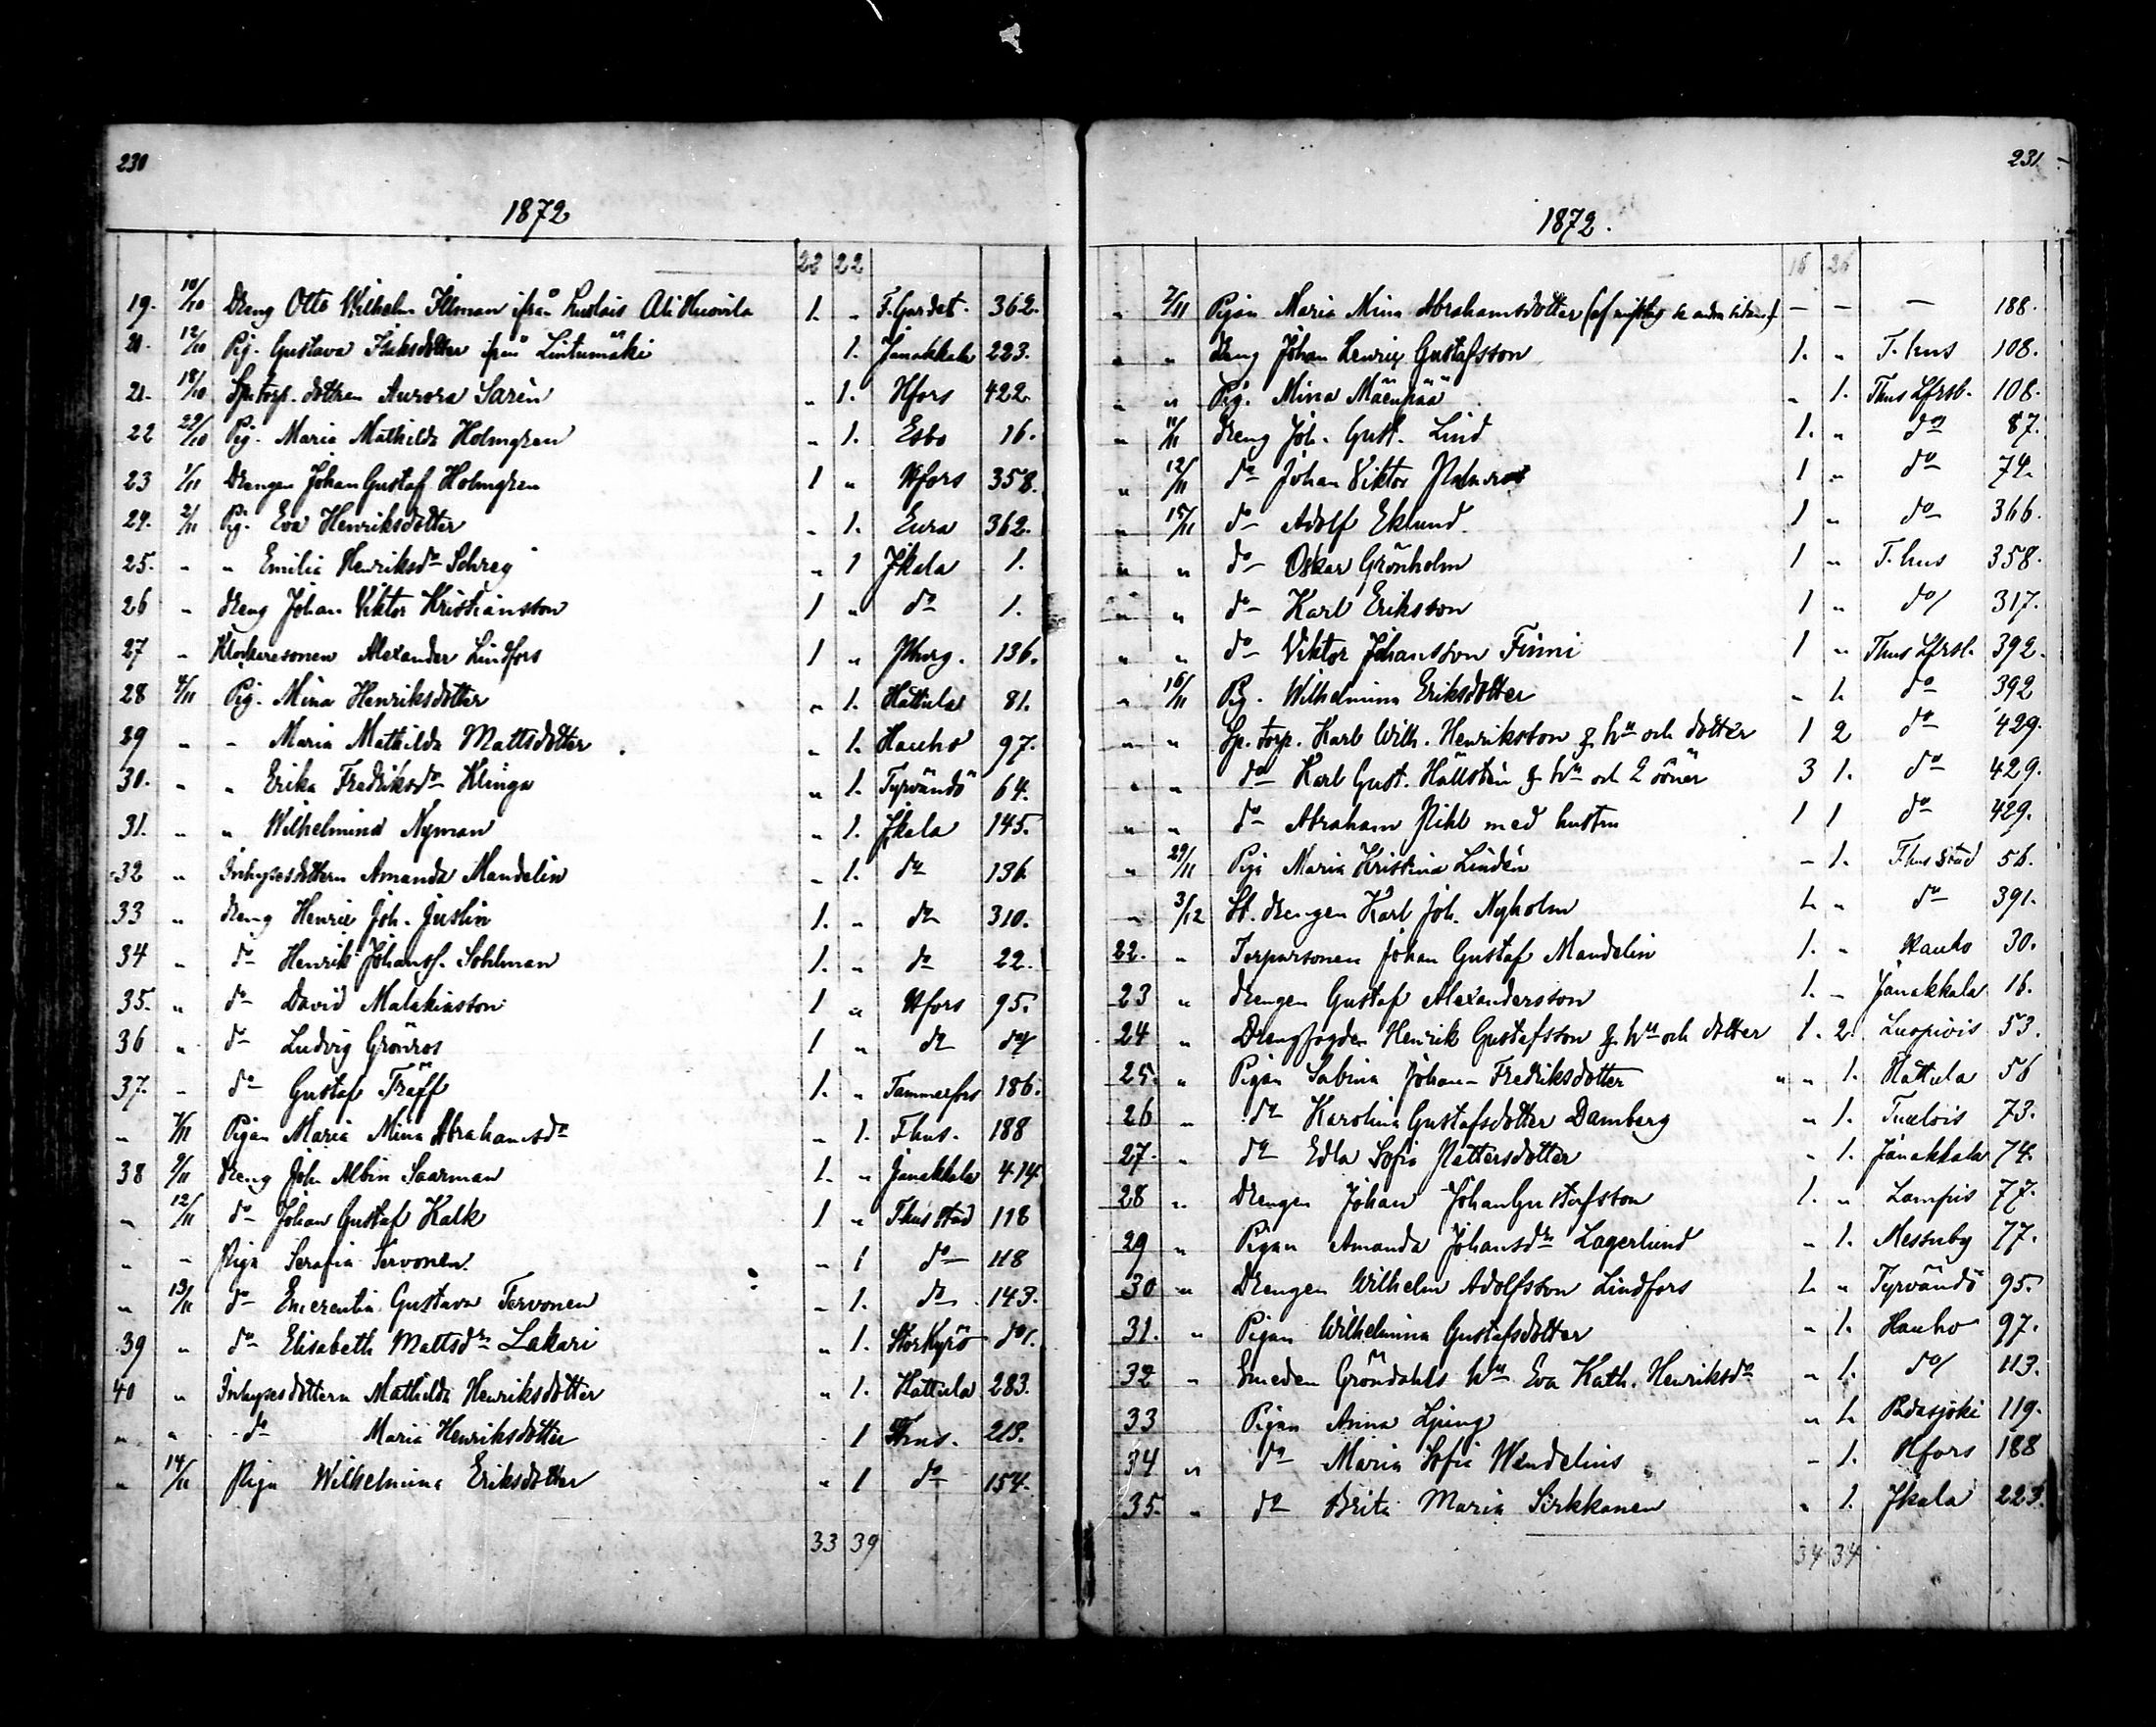 230
1872
22 22
19. 10/10 Dreng Otto Wilhelm Illman ifrån Ali Huovila 1. " F. Gardet. 362.
20. 12/10 Pig. Gustava Isiksdotter ifrån Lintumäki 1. Janakkala 223.
21. 18/10 Sp. torp. dottren Aurora Sarin " 1. Hfors 422.
22 22/10 Pig. Maria Mathilda Holmgren " 1. Esbo 16.
23 1/11 Drengen Johan Gustaf Holmgren 1 " Hfors 358.
24. 2/11 Pig. Eva Henriksdotter " 1. Eura 362.
25. " " Emilia Henriksdr Schrey " 1 Jkala 1.
26 " dreng Johan Viktor Kristiansson 1 " do 1.
27 " Klockaresonen Alexander Lindfors 1 " 136.
28 4/11 Pig. Mina Henriksdotter " 1. Hattula 81.
29 " " Maria Mathilda Mattsdotter " 1. Hauho 97.
30. " " Erika Fredriksdr Klinga " 1. Tyrvändö 64.
31. " " Wilhelmina Nyman " 1. Jkala 145.
32 " Inhysesdottern Amanda Mandelin " 1. do 136
33 " dreng Henric Joh. Justin 1. " do 310.
34 " do Henrik Johanss. Sohlman 1. " do 22.
35. " do David Malakiasson 1 " Hfors 95.
36 " do Ludvig Grönros 1 " do do
37. " do Gustaf Träff 1. " Tammerfors 186.
" 7/11 Pigan Maria Mina Abrahamsdr " 1. T.hus. 188
38 9/11 dreng Joh. Albin Saarman 1. " Janakkala 414.
" 12/11 do Johan Gustaf Kalk 1 " Thus stad 118
" " Piga Serafia Tervonen " 1 do 118
" 13/11 do Emerentia Gustava Tervonen " 1. do 143.
39 " do Elisabeth Mattsdr Lakari " 1. Storkyrö do.
40 " Inhysesdottern Mathilda Henriksdotter " 1. Hattula 283.
" " do Maria Henriksdotter " 1 Thus. 213.
" 14/11 Piga Wilhelmina Eriksdotter " 1 do 154.
33 39
231.
1872.
16 26
" 7/11 Pigan Maria Mina Abrahamsdotter — — — 188.
" " dreng Johan Henric Gustafsson 1. " T. hus 108.
" " Pig. Mina Mäenpää " 1. Thus Lfrsl. 108.
" 11/11 dreng Joh. Gust. Lind 1. " do 87.
" 12/11 do Johan Viktor 1 " do 74.
" 15/11 do Adolf Eklund. 1 " do 366.
" " do Oskar Grönholm 1 " T. hus 358.
" " do Karl Eriksson 1 " do 317.
" " do Viktor Johansson Finni 1 " Thus Lfrsl. 392.
" 16/11 Pig. Wilhelmina Eriksdotter " 1. do 392
" " Sp. torp. Karl Wilh. Henriksson o. hu och dotter 1 2 do 429.
" " do Karl Gust. Hällstén o. hu och 2 söner 3 1. do 429.
" " do Abraham Pihl med hustru 1 1 do 429.
" 29/11 Piga Maria Kristina Lindén — 1. Thus stad 56.
" 3/12 St. drengen Karl Joh. Nyholm 1. " do 391.
22. " Torparsonen Johan Gustaf Mandelin 1. " Hauho 30.
23 " drengen Gustaf Alexandersson 1. " Janakkala 16.
24 " Drengfogden Henrik Gustafsson o. hu och dotter 1. 2. Luopiois 53.
25. " Pigan Sabina Johan-Fredriksdotter " " 1. Hattula 56
26 " do Karolina Gustafsdotter Damberg " 1. Tuulois 73.
27. " do Edla Sofia Pettersdotter " 1. Janakkala 74.
28 " Drengen Johan Johan Gustafsson 1. " Lampis 77.
29 " Pigan Amanda Johansdr Lagerlund " 1. Messuby 77.
30 " Drengen Wilhelm Adolfsson Lindfors 1. " Tyrvändö 95.
31. " Pigan Wilhelmina Gustafsdotter " 1. Hauho 97.
32 " Smeden Gröndahls hu Eva Kath. Henriksdr " 1. do 113.
33 Pigan Anna Ljung " 1. Padasjoki 119.
34 " do Maria Sofia Wendelius " 1. Hfors 188
35. " do Brita Maria Sirkkanen " 1. Jkala 223.
34 34